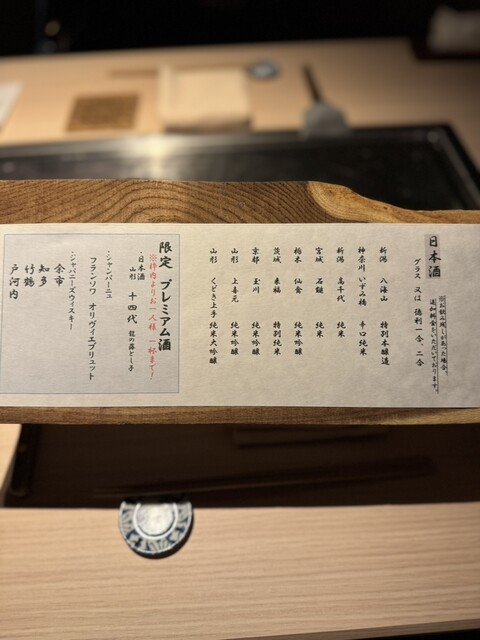 日本酒
※お飲み残しがあった場合、
追加料金をいただいております。
グラス 又は 徳利 一合、二合
新潟 八海山 特別本醸造
神奈川 いずみ橋 辛口純米
新潟 高千代 純米
宮城 石鎚 純米
栃木 仙禽 純米吟醸
茨城 来福 特別純米
京都 玉川 純米吟醸
山形 上喜元 純米吟醸
山形 くどき上手 純米大吟醸
限定 プレミアム酒
※枠内よりお一人様 一杯まで!
・日本酒
山形 十四代 龍の落とし子
・シャンパーニュ
フランソワ オリヴィエブリュット
・ジャパニーズウィスキー
余市
知多
竹鶴
戸河内